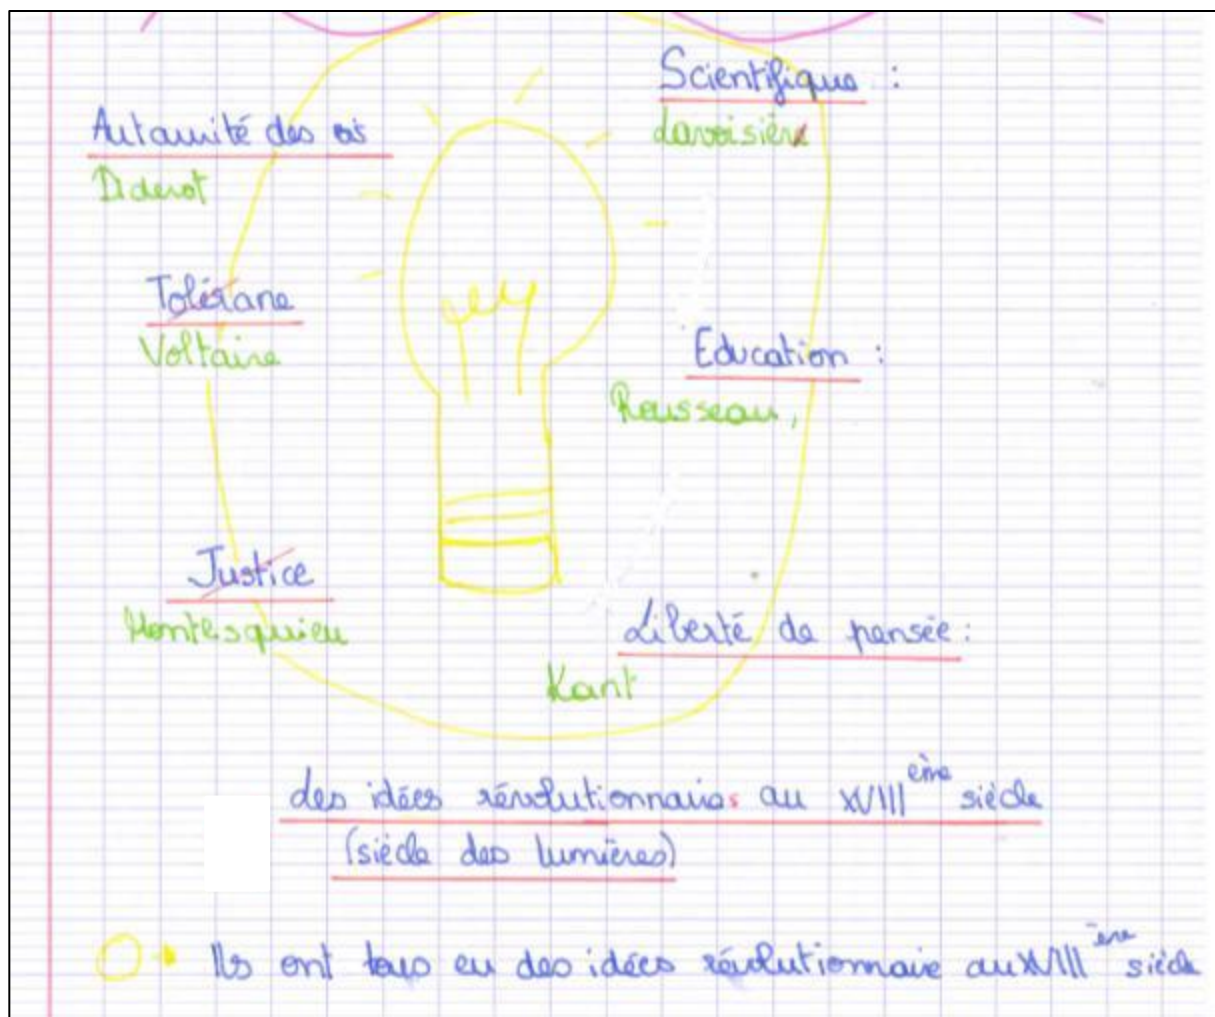 Scientifique :
Lavoisière
Autorité des
Diderot
Tolérane
Voltaire
Education :
Rousseau,
Justice
Montesquieu
Liberté de pensée :
Kant
des idées révolutionnaires au XVIII ème siècle
(siècle des lumières)
Ils ont tous eu des idées révolutionnaire au XVIII ème siècle